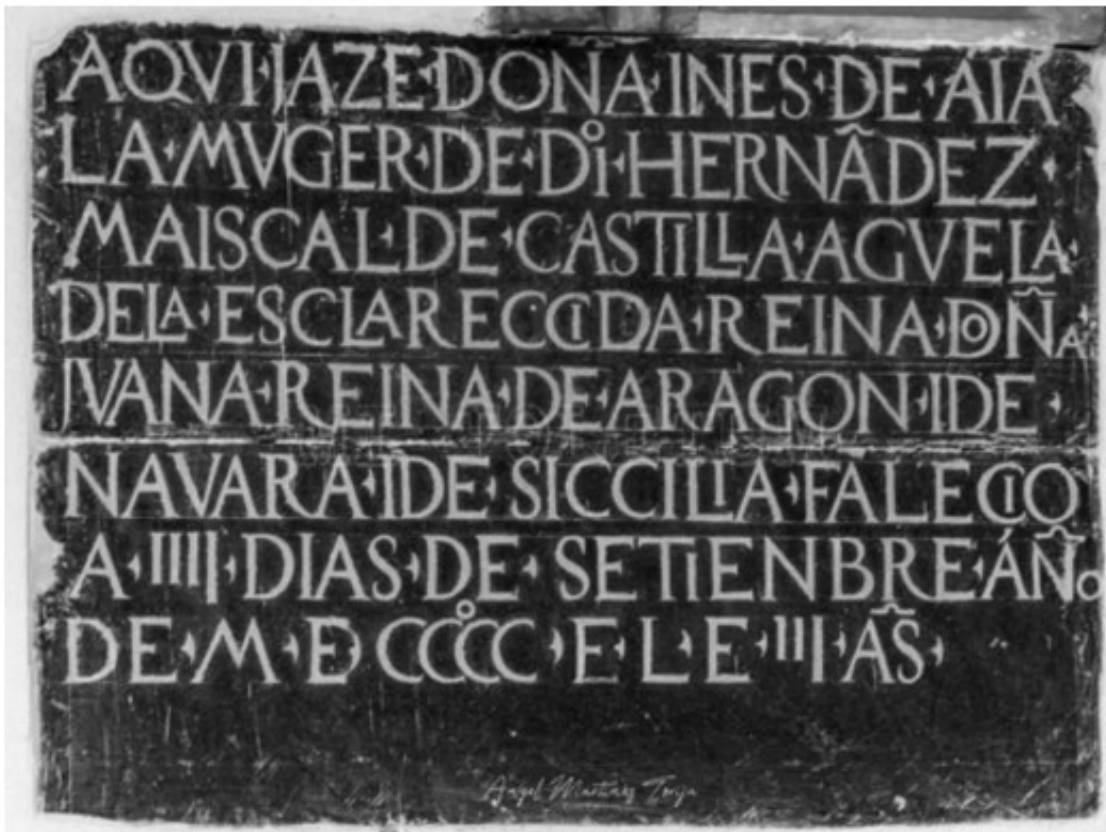 AQVI·JAZE·DOÑA·INES·DE·AIA
LA·MVGER·DE·DIͦ·HERNÃDEZ·
MAISCAL·DE·CASTILLA·AGVELA·
DELA·ESCLARECCIDA·REINA·DOÑA
JVANA·REINA·DE·ARAGON·IDE·
NAVARA·IDE·SICCILIA·FALECIO
A·IIII·DIAS·DE·SETIENBRE·ÁÑO
DE·M·D·CCCCͦ·E·L·E·III·AS̃·
Angel Martinez Torija